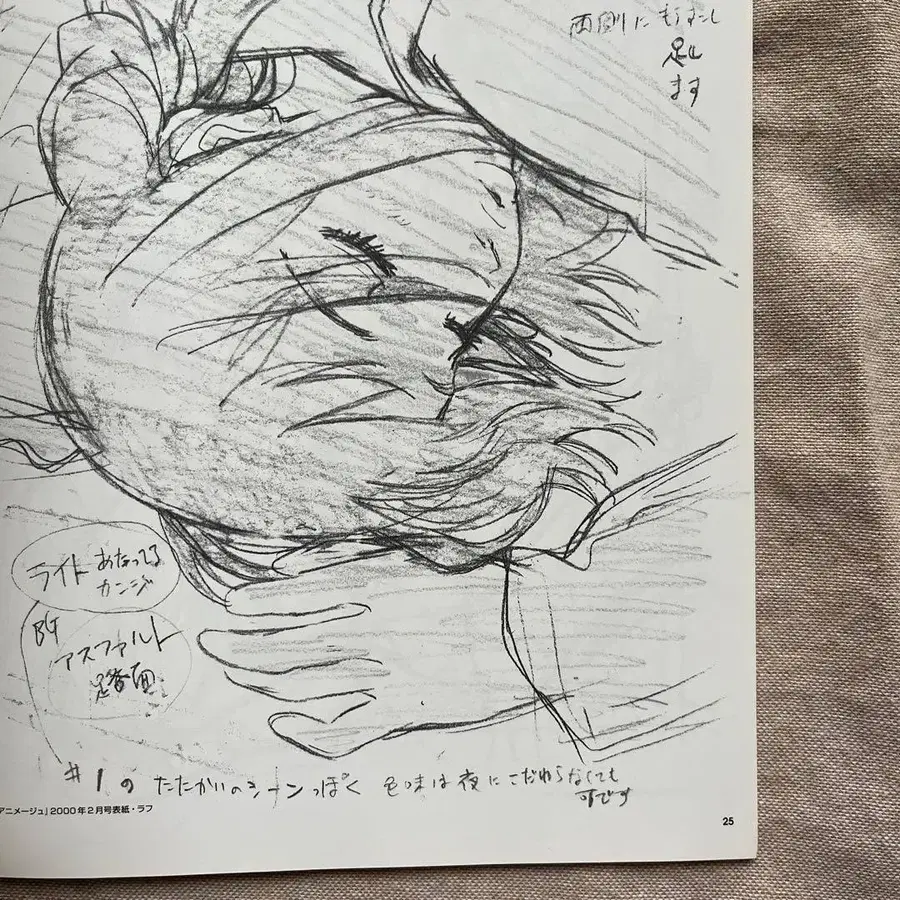 両側にもう少し
足し
ます
ライト あたってる
カンジ
BG
アスファルト
路面
#1の たたかいのシーンっぽく 色味は夜にこだわらなくても
可です
アニメージュ」2000年2月号表紙・ラフ
25